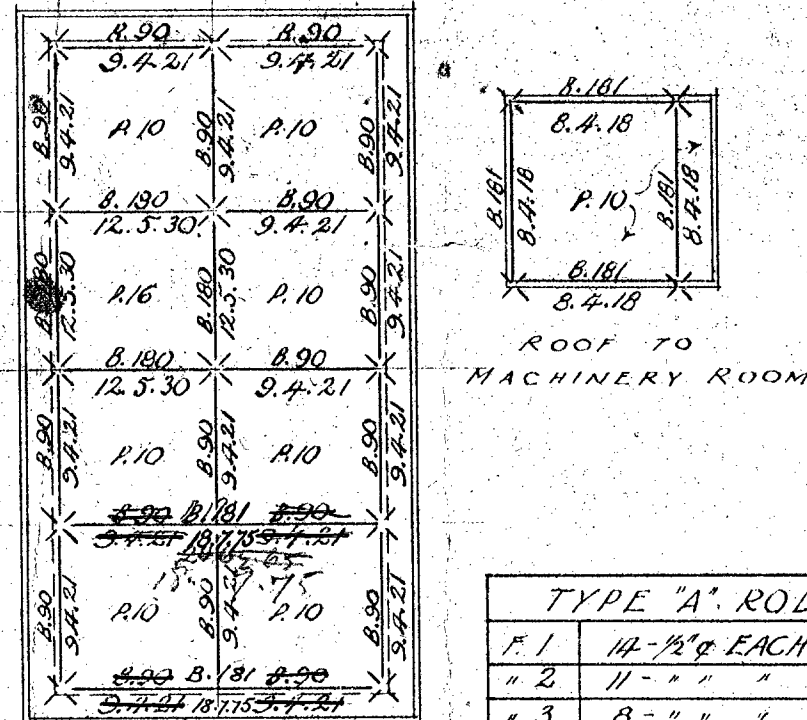 B.90 B.90
9.4.21 9.4.21
B.90 9.4.21 P.10 B.90 9.4.21 P.10 B.90 9.4.21
B.180 B.90
12.5.30 9.4.21
12.5.30 P.16 B.180 12.5.30 P.10 B.90 9.4.21
B.180 B.90
12.5.30 9.4.21
B.90 9.4.21 P.10 B.90 9.4.21 P.10 B.90 9.4.21
B.90 B.181 B.90
9.4.21 18.7.75 9.4.21
B.90 9.4.21 P.10 B.90 9.4.21 P.10 B.90 9.4.21
B.90 B.181 B.90
9.4.21 18.7.75 9.4.21
B.181
8.4.18
B.181 8.4.18 P.10 B.181 8.4.18
B.181
8.4.18
ROOF TO
MACHINERY ROOM
TYPE "A".
F. 1 14-½"φ EACH
" 2 11 - " " "
" 3 8 - " " "